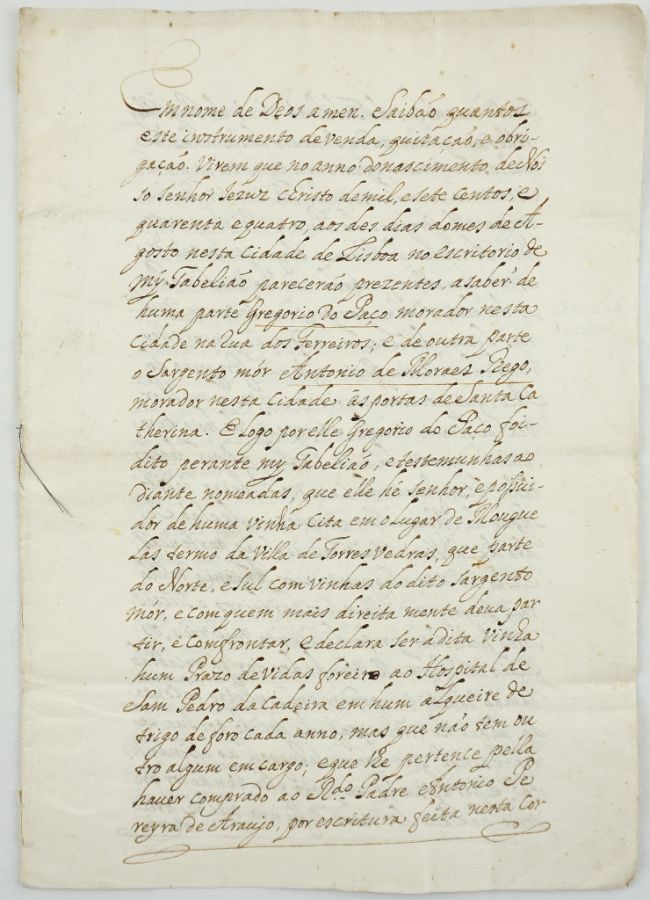 Em nome de Deos amen. Saibão quantos
este instrumento de venda, quitação, e obri-
gação. Virem que no anno do nascimento de Nos
so senhor Jezuz Christo de mil, e sete centos, e
quarenta e quatro, aos des dias do mes de A-
gosto nesta Cidade de Lisboa no escritorio de
my Tabelião parecerão prezentes, a saber de
huma parte Gregorio do Paço morador nesta
Cidade na Rua dos Ferreiros; e de outra parte
o Sargento mór Antonio de Moraes Rego,
morador nesta Cidade ás portas de Santa Ca
therina. E logo por elle Gregorio do Paço foi-
dito perante my Tabelião, e testemunhas ao
diante nomeadas, que elle hé senhor, e possui-
dor de huma vinha cita em o lugar de Mougue
las termo da Villa de Torres Vedras, que parte
do Norte, e Sul com vinhas do dito Sargento
Mór, e com quem mais direita mente deva par
tir, e comfrontar, e declara ser a dita vinha
hum Prazo de vidas foreiro ao Hospital de
Sam Pedro da Cadeira em hum alqueire de
trigo de foro cada anno, mas que não tem ou
tro algum emcargo; e que lhe pertence pella
haver comprado ao Rdo Padre Antonio Pe
reyra de Araujo, por escritura feita nesta Cor